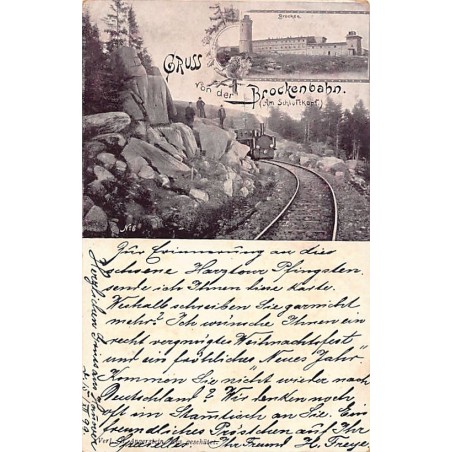 Brocken.
Gruss
von der Brockenbahn.
(Am Schluftkopf.)
No 6
Zur Erinnerung an die
schoene Harztour Pfingsten,
sende ich Ihnen eine Karte.
Weshalb schreiben Sie garnicht
mehr? Ich wünsche Ihnen ein
recht vergnügtes Weihnachtsfest
und ein fröhliches "Neues Jahr".
Kommen Sie nicht wieder nach
Deutschland? Wir denken noch
oft im Stamtisch an Sie. Ein
freundliches Pröstchen auf Ihr
specielles. Ihr Freund H. Freye.
Verl. geschützt.
Herzlichen